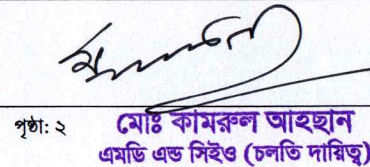 পৃষ্ঠা: ২
মোঃ কামরুল আহছান
এমডি এন্ড সিইও (চলতি দায়িত্ব)